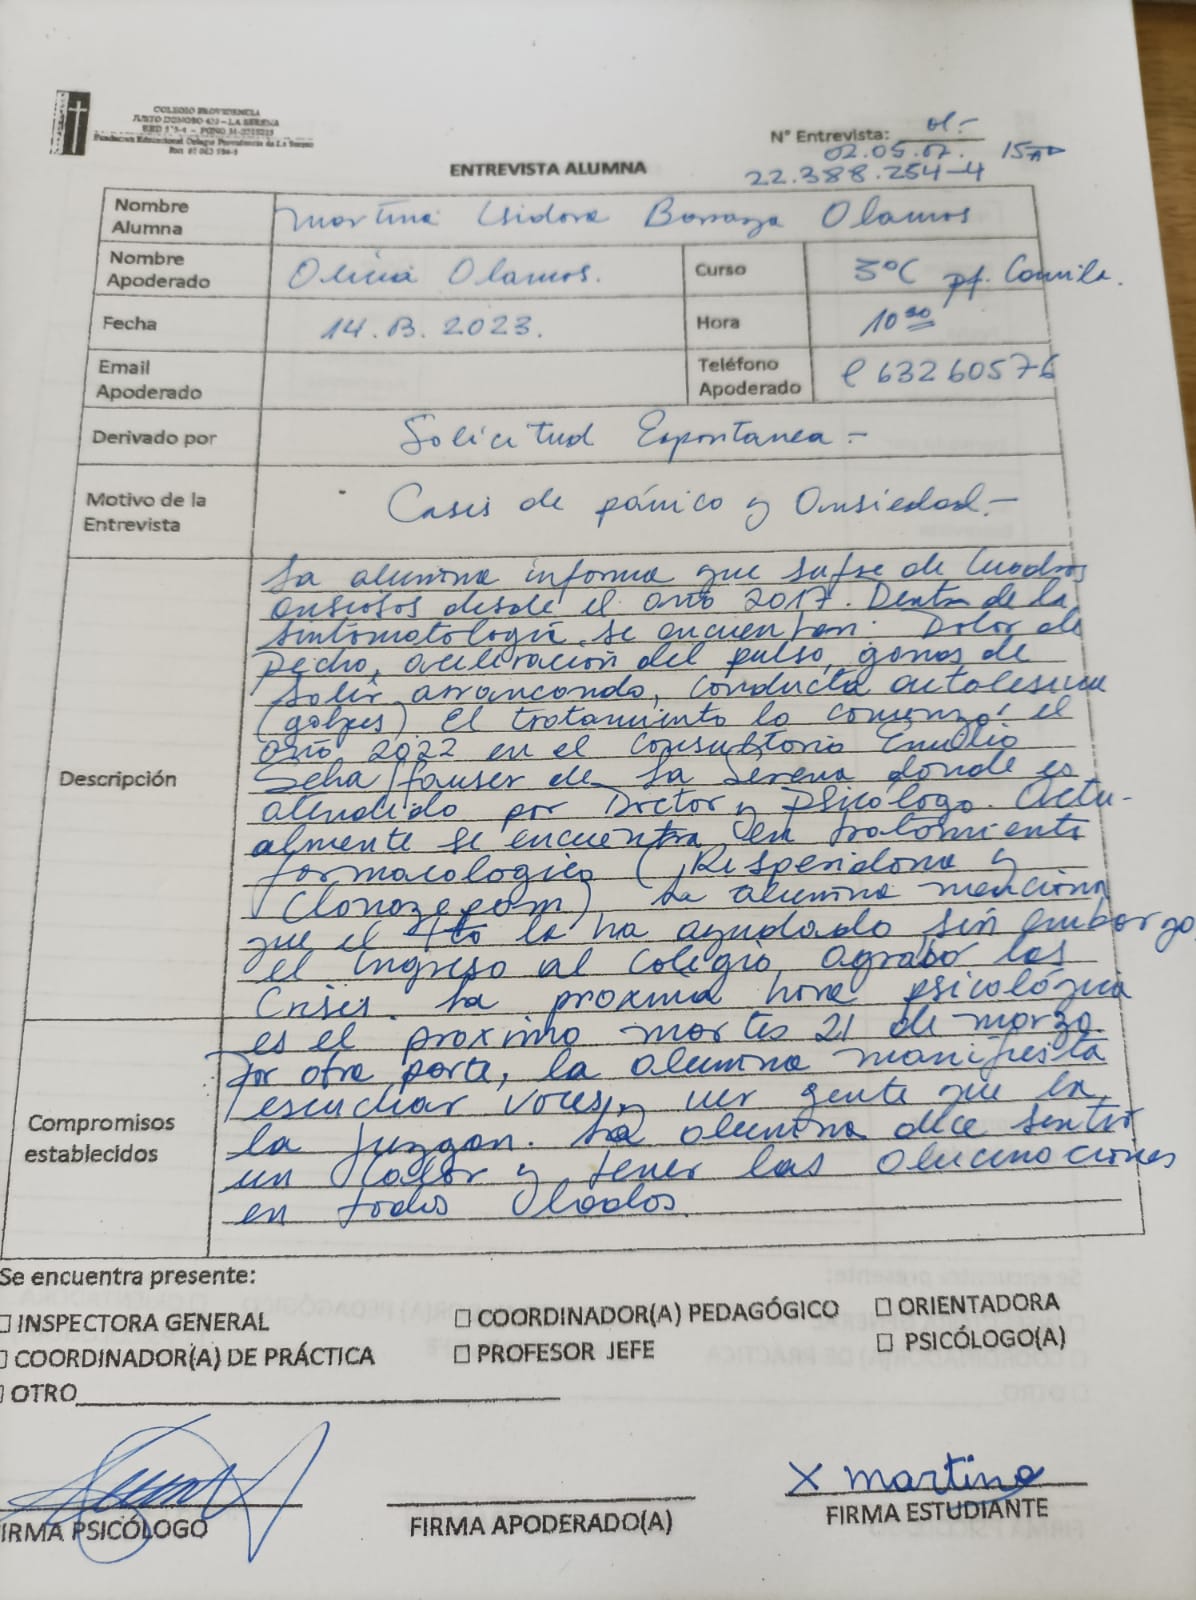 COLEGIO PROVIDENCIA
JUSTO DONOSO 420 - LA SERENA
Fundación Educacional Colegio Providencia de La Serena
N° Entrevista: 01.-
02.05.07. 15
22.388.254-4
ENTREVISTA ALUMNA
Nombre Alumna Martina Isidora Barraza Olamos
Nombre Apoderado Olivia Olamos. Curso 3°C pf. Camila.
Fecha 14.03.2023. Hora 10:30
Email Apoderado Teléfono Apoderado 63260576
Derivado por Solicitud Espontanea -
Motivo de la Entrevista Crisis de pánico y Ansiedad.-
Descripción
La alumna informa que sufre de Cuadros
ansiosos desde el año 2017. Dentro de la
sintomatología se encuentran: Dolor de
Pecho, aceleración del pulso, ganas de
Salir arrancando, conducta autolesiva
(golpes) El tratamiento lo comenzó el
año 2022 en el Consultorio Emilio
Schaffauser de La Serena donde es
atendido por Doctor y Psicólogo. Actu-
almente se encuentra en tratamiento
farmacologico (Risperidona y
Clonazepam) La alumna menciona
que el tto la ha ayudado sin embargo
el Ingreso al Colegio, agrabo las
Crisis. La proxima hora psicológica
es el proximo martes 21 de marzo.
Compromisos establecidos
Por otra parte, la alumna manifiesta
escuchar voces y ver gente que la
la juzgan. La alumna dice sentir
un calor y tener las alucinaciones
en todos lados.
Se encuentra presente:
□ INSPECTORA GENERAL □ COORDINADOR(A) PEDAGÓGICO □ ORIENTADORA
□ COORDINADOR(A) DE PRÁCTICA □ PROFESOR JEFE □ PSICÓLOGO(A)
□ OTRO
x martina
FIRMA PSICÓLOGO FIRMA APODERADO(A) FIRMA ESTUDIANTE